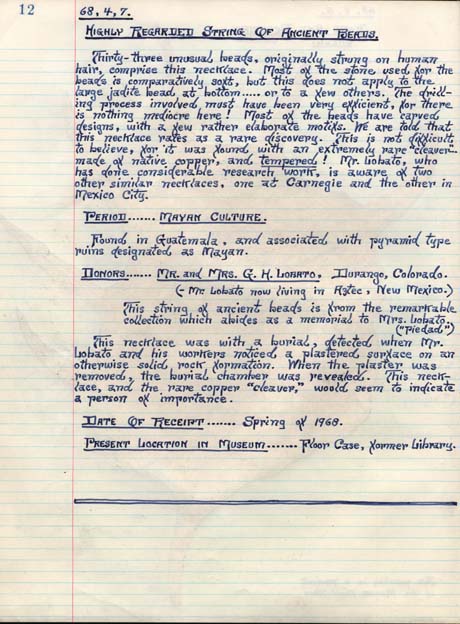 12
68, 4, 7.
Highly Regarded String Of Ancient Beads.
Thirty-three unusual beads, originally strung on human
hair, comprise this necklace. Most of the stone used for the
beads is comparatively soft, but this does not apply to the
large jadite bead at bottom..... or to a few others. The drill-
ing process involved, must have been very efficient, for there
is nothing mediocre here! Most of the beads have carved
designs, with a few rather elaborate motifs. We are told that
this necklace rates as a rare discovery. This is not difficult
to believe, for it was found with an extremely rare "cleaver"
made of native copper, and tempered! Mr. Lobato, who
has done considerable research work, is aware of two
other similar necklaces, one at Carnegie and the other in
Mexico City.
Period....... Mayan Culture.
Found in Guatemala, and associated with pyramid type
ruins designated as Mayan.
Donors....... Mr. and Mrs. G. H. Lobato, Durango, Colorado.
(- Mr. Lobato now living in Aztec, New Mexico.)
This string of ancient beads is from the remarkable
collection which abides as a memorial to Mrs. Lobato.
("Piedad")
This necklace was with a burial, detected when Mr.
Lobato and his workers noticed a plastered surface on an
otherwise solid, rock formation. When the plaster was
removed, the burial chamber was revealed. This neck-
lace, and the rare copper "cleaver," would seem to indicate
a person of importance.
Date Of Receipt ....... Spring of 1968.
Present Location in Museum....... Floor Case, former Library.